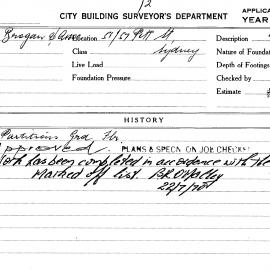 12
CITY BUILDING SURVEYOR'S DEPARTMENT
APPLICA
YEAR
Location 51/57 Pitt St
Description
Class Sydney
Nature of Founda
Live Load
Depth of Footings
Foundation Pressure
Checked by
Estimate
HISTORY
Partitions Grd Flr.
PLANS & SPECN ON JOB CHECKE
Work has been completed in accordance with the
Marked off list.
22/7/70